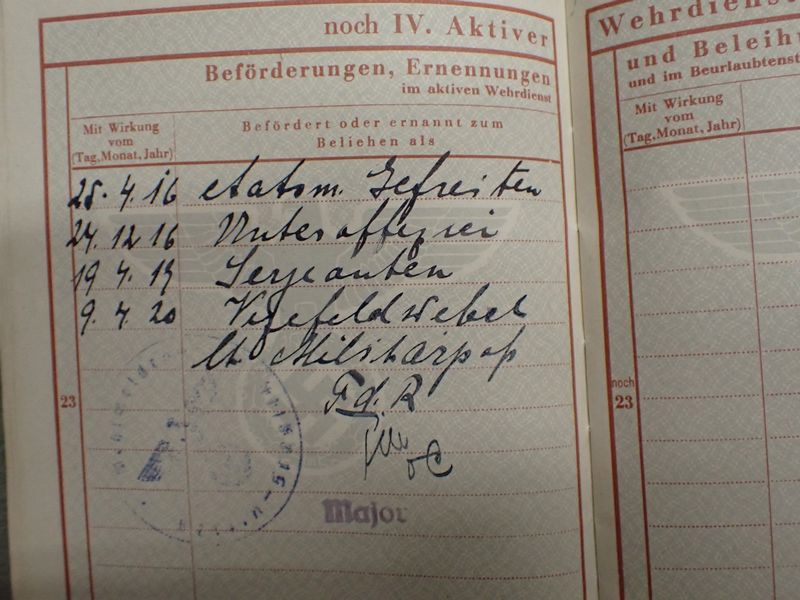 noch IV. Aktiver
Beförderungen, Ernennungen
im aktiven Wehrdienst
Mit Wirkung
vom
(Tag, Monat, Jahr)
Befördert oder ernannt zum
Beliehen als
25. 4. 16 etatsm. Gefreiten
24. 12 16 Unteroffizier
19 4. 19 Sergeanten
9. 4. 20 Vizefeldwebel
lt. Militärpaß
F. d. R
Major
23
Wehrdienst
und Beleih
und im Beurlaubtenst
Mit Wirkung
vom
(Tag, Monat, Jahr)
noch
23